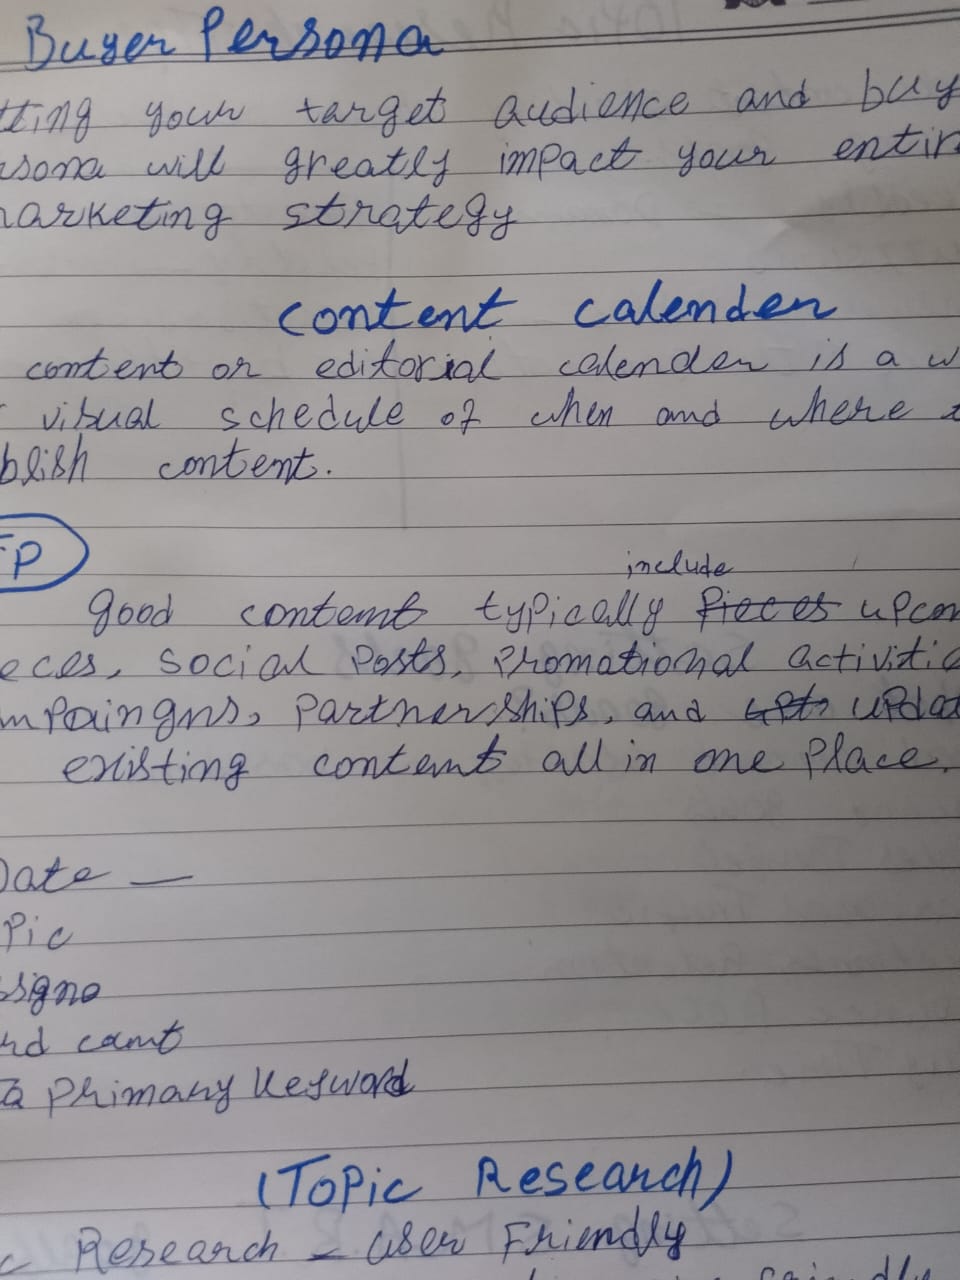 Buyer Persona
tting your target audience and buy
rsona will greatly impact your entir
marketing strategy
content calender
content or editorial calender is a w
visual schedule of when and where
blish content.
EP
include
good content typically pieces upcom
eces, social posts, promotional activitie
mpaingns, partnerships, and updat
existing content all in one place.
Date —
Pic
ssigne
rd count
Primary Keyword
(Topic Research)
c Research – user Friendly